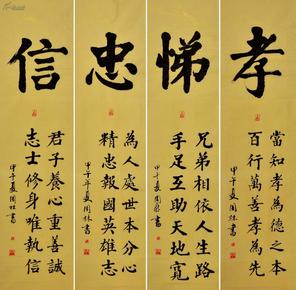 孝
當知孝為德之本
百行萬善孝為先
甲午夏 書
悌
兄弟相依人生路
手足互助天地寬
甲午夏 書
忠
為人處世本分心
精忠報國英雄志
甲午年夏 書
信
君子養心重善誠
志士修身唯執信
甲午夏 書